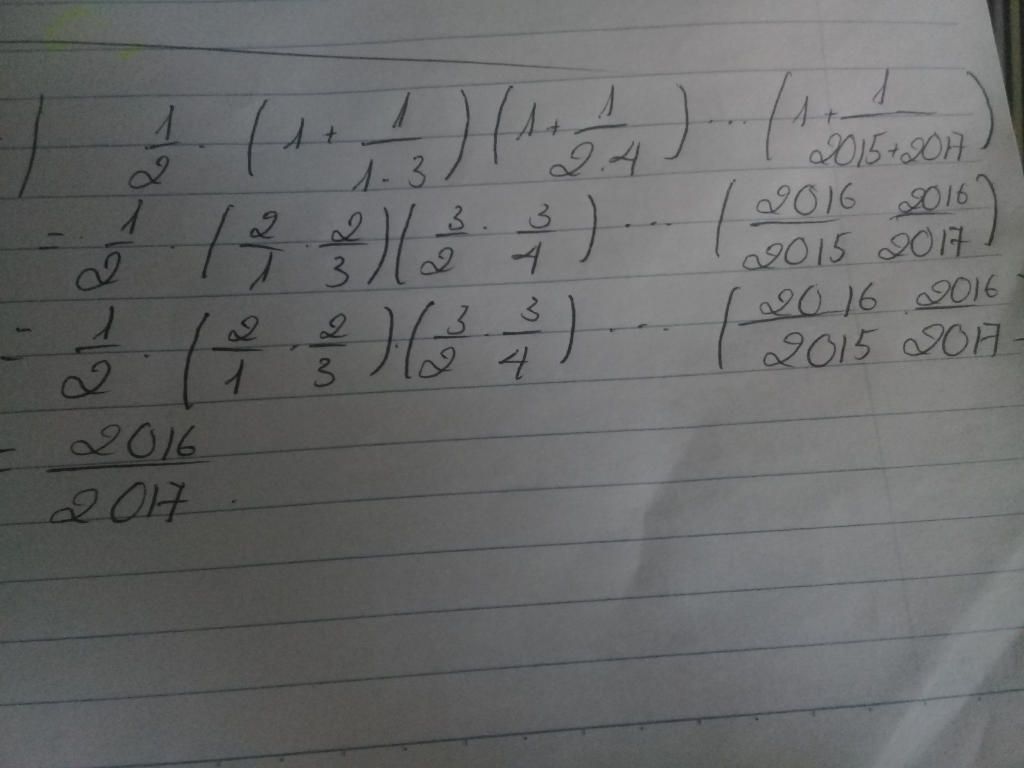 ) 1/2 . (1 + 1/1.3) (1 + 1/2.4) ... (1 + 1/2015+2017)
= 1/2 . (2/1 . 2/3) (3/2 . 3/4) ... (2016/2015 2016/2017)
= 1/2 . (2/1 . 2/3) . (3/2 . 3/4) ... (2016/2015 . 2016/2017
= 2016/2017 .